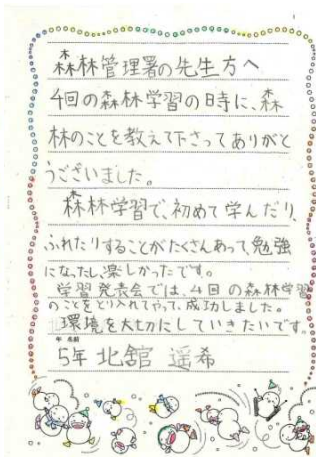 森林管理署の先生方へ
4回の森林学習の時に、森
林のことを教えて下さってありがと
うございました。
森林学習で、初めて学んだり、
ふれたりすることがたくさんあって、勉強
になったし、楽しかったです。
学習発表会では、4回の森林学習
のことをとり入れてやって、成功しました。
環境を大切にしていきたいです。
年 名前
5年 北舘 遥希